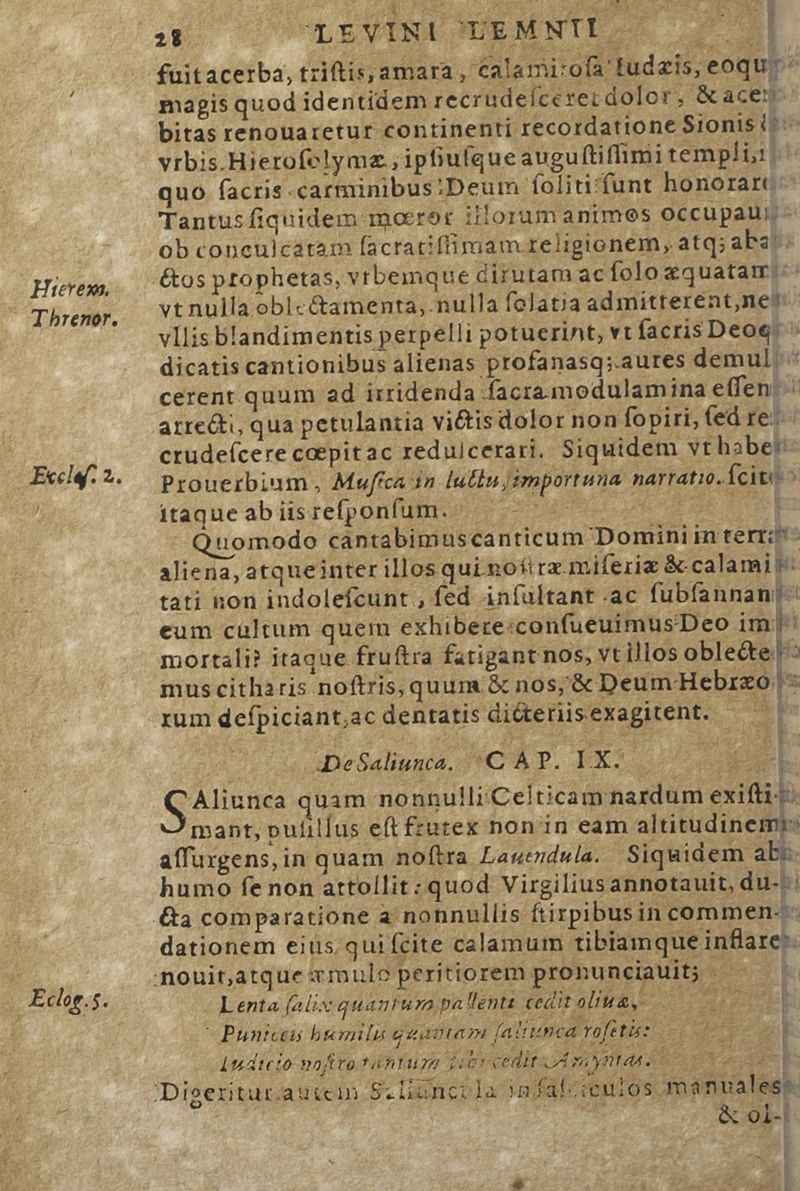 28 LEVINI LEMNII
fuit acerba, triſtis, amara, calamitoſa Iudæis, eoqu
magis quod identidem recrudeſceret dolor, & acer
bitas renouaretur continenti recordatione Sionis
vrbis. Hieroſolymæ, ipſiuſque auguſtiſſimi templi,
quo ſacris carminibus Deum ſoliti ſunt honorar
Tantus ſiquidem mœror illorum animos occupaui
ob conculcatam ſacratiſſimam religionem, atq; aba
ctos prophetas, vrbemque dirutam ac ſolo æquatam
Hierem.
Threnor.
vt nulla oblectamenta, nulla ſolatia admitterent, ne
vllis blandimentis perpelli potuerint, vt ſacris Deoq
dicatis cantionibus alienas profanasq; aures demul
cerent quum ad irridenda ſacra modulamina eſſen
arrecti, qua petulantia victis dolor non ſopiri, ſed re
crudeſcere cœpit ac reduicerari. Siquidem vt habe
Eccleſ. 2.
Prouerbium, Muſica in luctu, importuna narratio. ſcit
itaque ab iis reſponſum.
Quomodo cantabimus canticum Domini in terr
aliena, atque inter illos qui noſtræ miſeriæ & calami
tati non indoleſcunt, ſed inſultant ac ſubſannan
eum cultum quem exhibere conſueuimus Deo im
mortali? itaque fruſtra fatigant nos, vt illos oblecte
mus citharis noſtris, quum & nos, & Deum Hebræo
rum deſpiciant, ac dentatis dicteriis exagitent.
De Saliunca. CAP. IX.
SAliunca quam nonnulli Celticam nardum exiſti-
mant, puſillus eſt frutex non in eam altitudinem
aſſurgens, in quam noſtra Lauendula. Siquidem ab
humo ſe non attollit: quod Virgilius annotauit, du-
cta comparatione a nonnullis ſtirpibus in commen-
dationem eius qui ſcite calamum tibiamque inflare
nouit, atque æmulo peritiorem pronunciauit;
Eclog. 5.
Lenta ſalix quantum pallenti cedit oliuæ,
Puniceis humilis quantam ſaliunca roſetis:
Iudicio noſtro tantum tibi cedit Amyntas.
Digeritur autem Saliunca in faſciculos manuales
& ol-